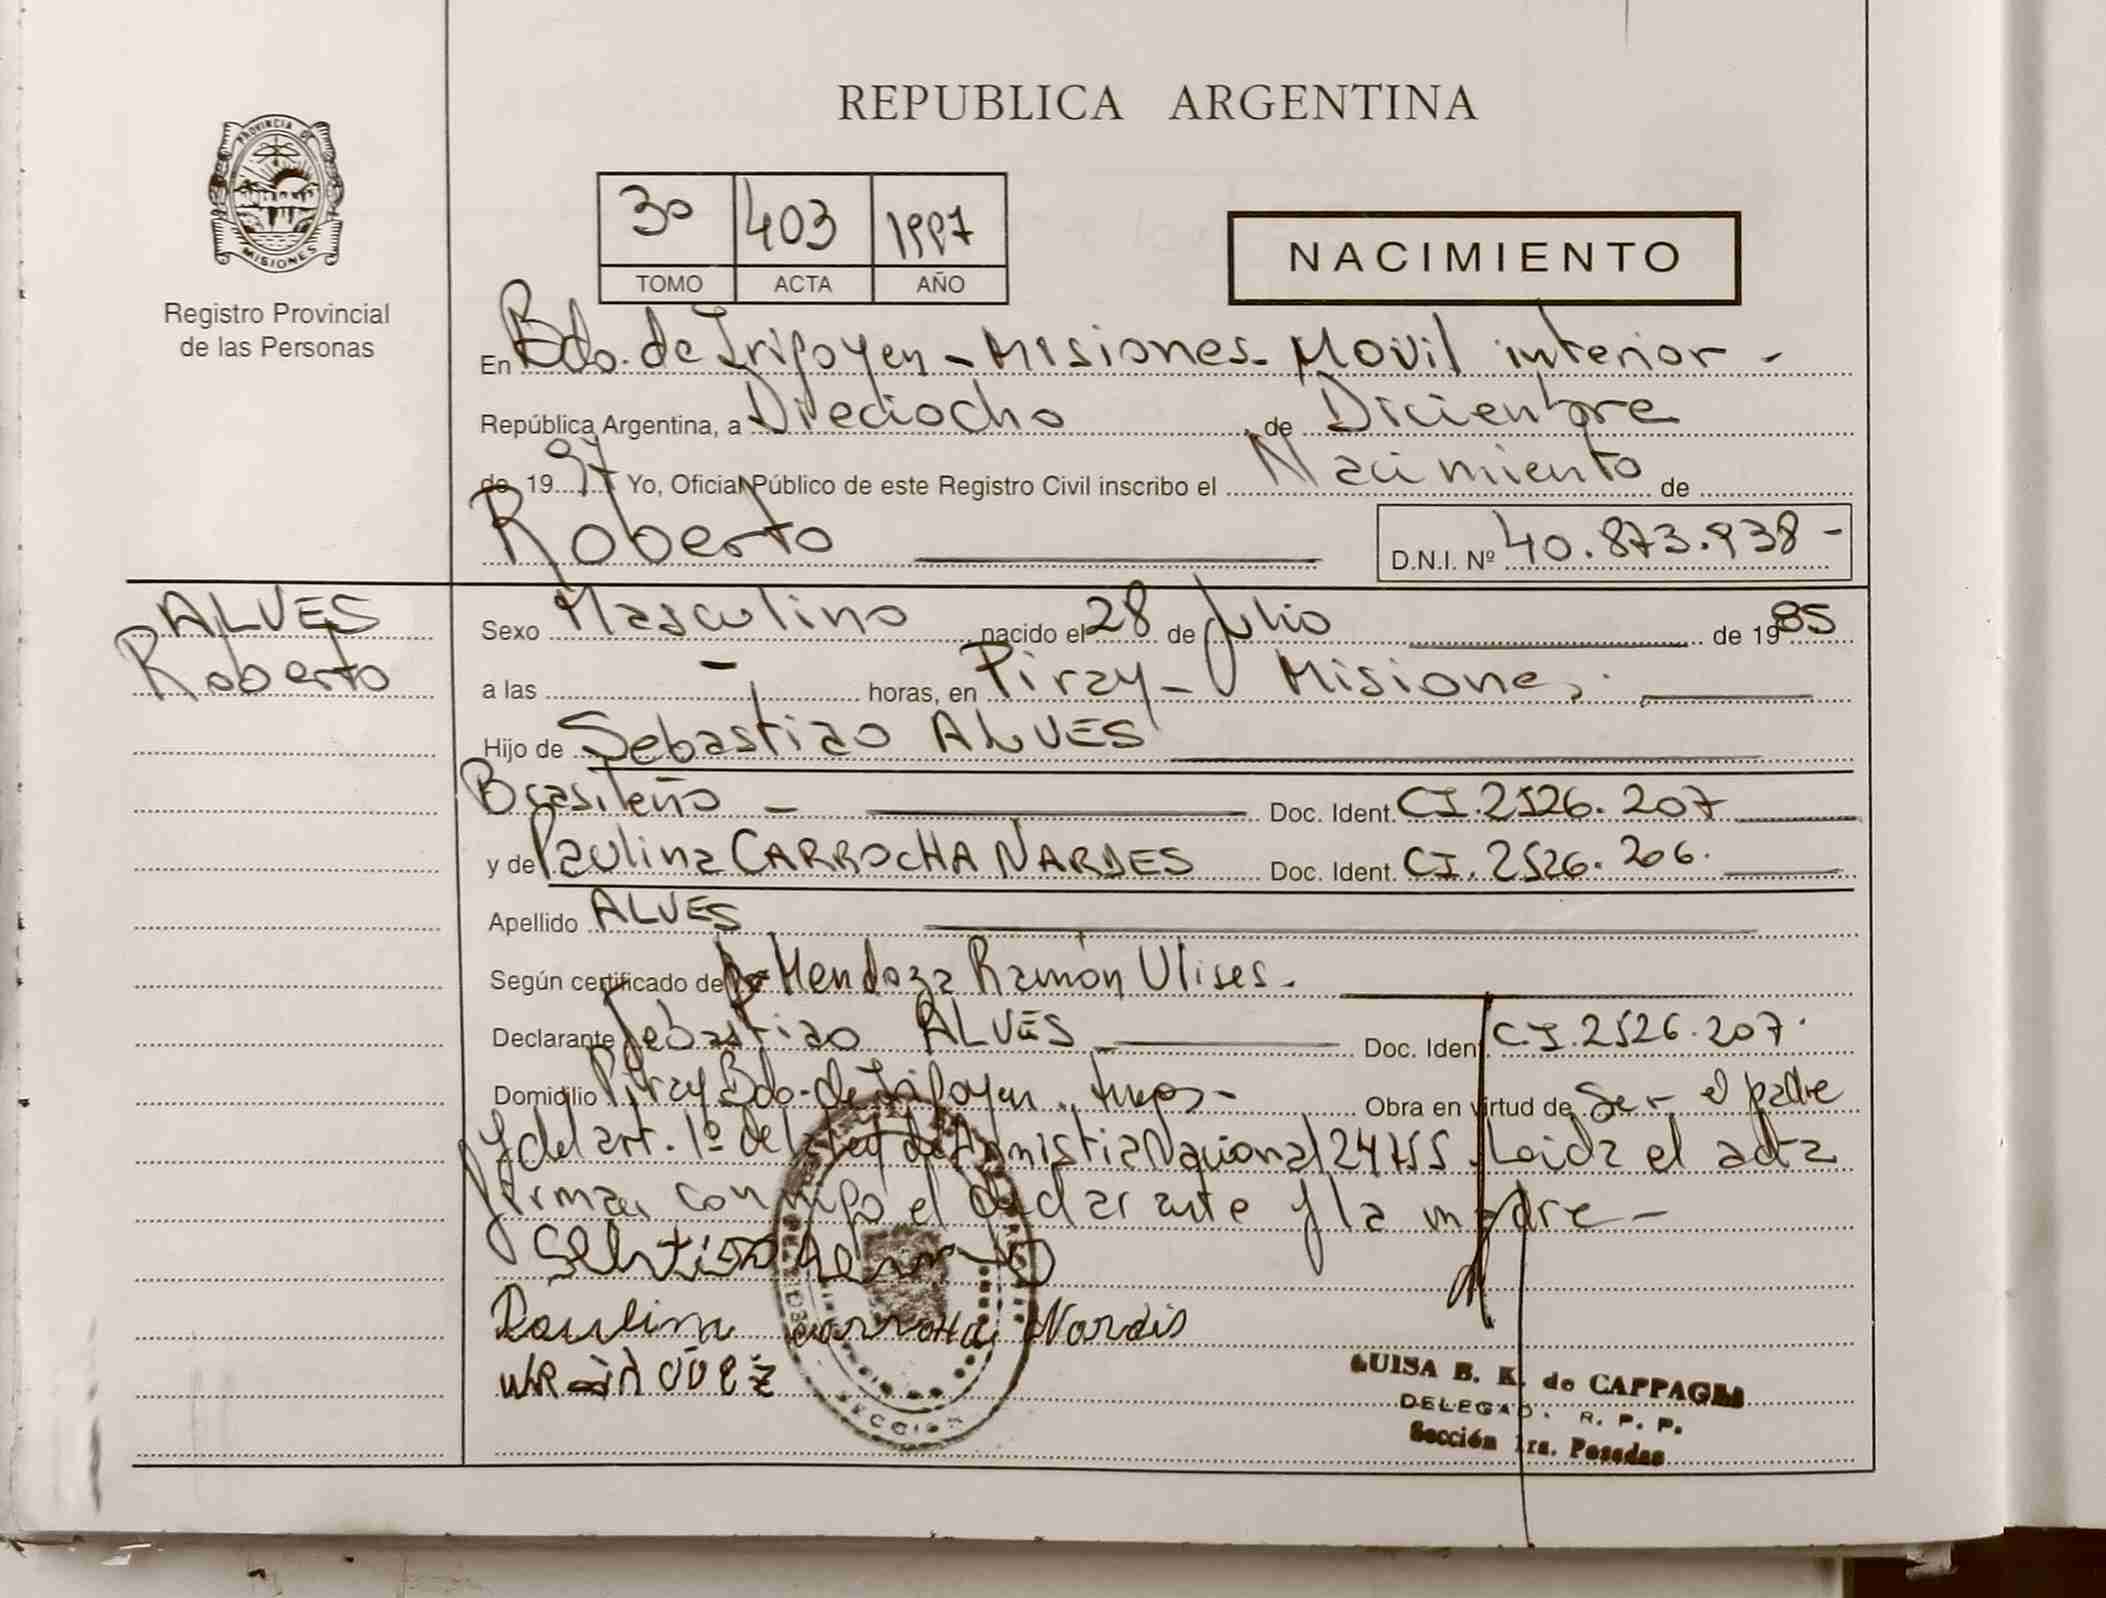 REPUBLICA ARGENTINA
PROVINCIA DE
MISIONES
Registro Provincial
de las Personas
3º 403 1997
TOMO ACTA AÑO
NACIMIENTO
En Bdo. de Irigoyen - Misiones - Movil interior -
República Argentina, a Dieciocho de Diciembre
de 1997 Yo, Oficial Público de este Registro Civil inscribo el Nacimiento de
Roberto D.N.I. Nº 40.873.938-
ALVES
Roberto
Sexo Masculino nacido el 28 de Julio de 1985
a las - horas, en Piray - Misiones.
Hijo de Sebastiao ALVES
Brasileño - Doc. Ident. CI. 2526.207
y de Paulina CARROCHA NARDES Doc. Ident. CI. 2526.206.
Apellido ALVES
Según certificado de Mendoza Ramón Ulises.
Declarante Sebastiao ALVES Doc. Ident. C.I. 2526.207.
Domicilio Piray Bdo. de Irigoyen Obra en virtud de Ser el padre
y del art. 1º de la Ley de Amnistia Nacional 24755. Leida el acta
firman conmigo el declarante y la madre -
Paulina Nardis
LUISA B. K. de CAPPAGLI
DELEGADA R. P. P.
Sección 1ra. Posadas
SECCION